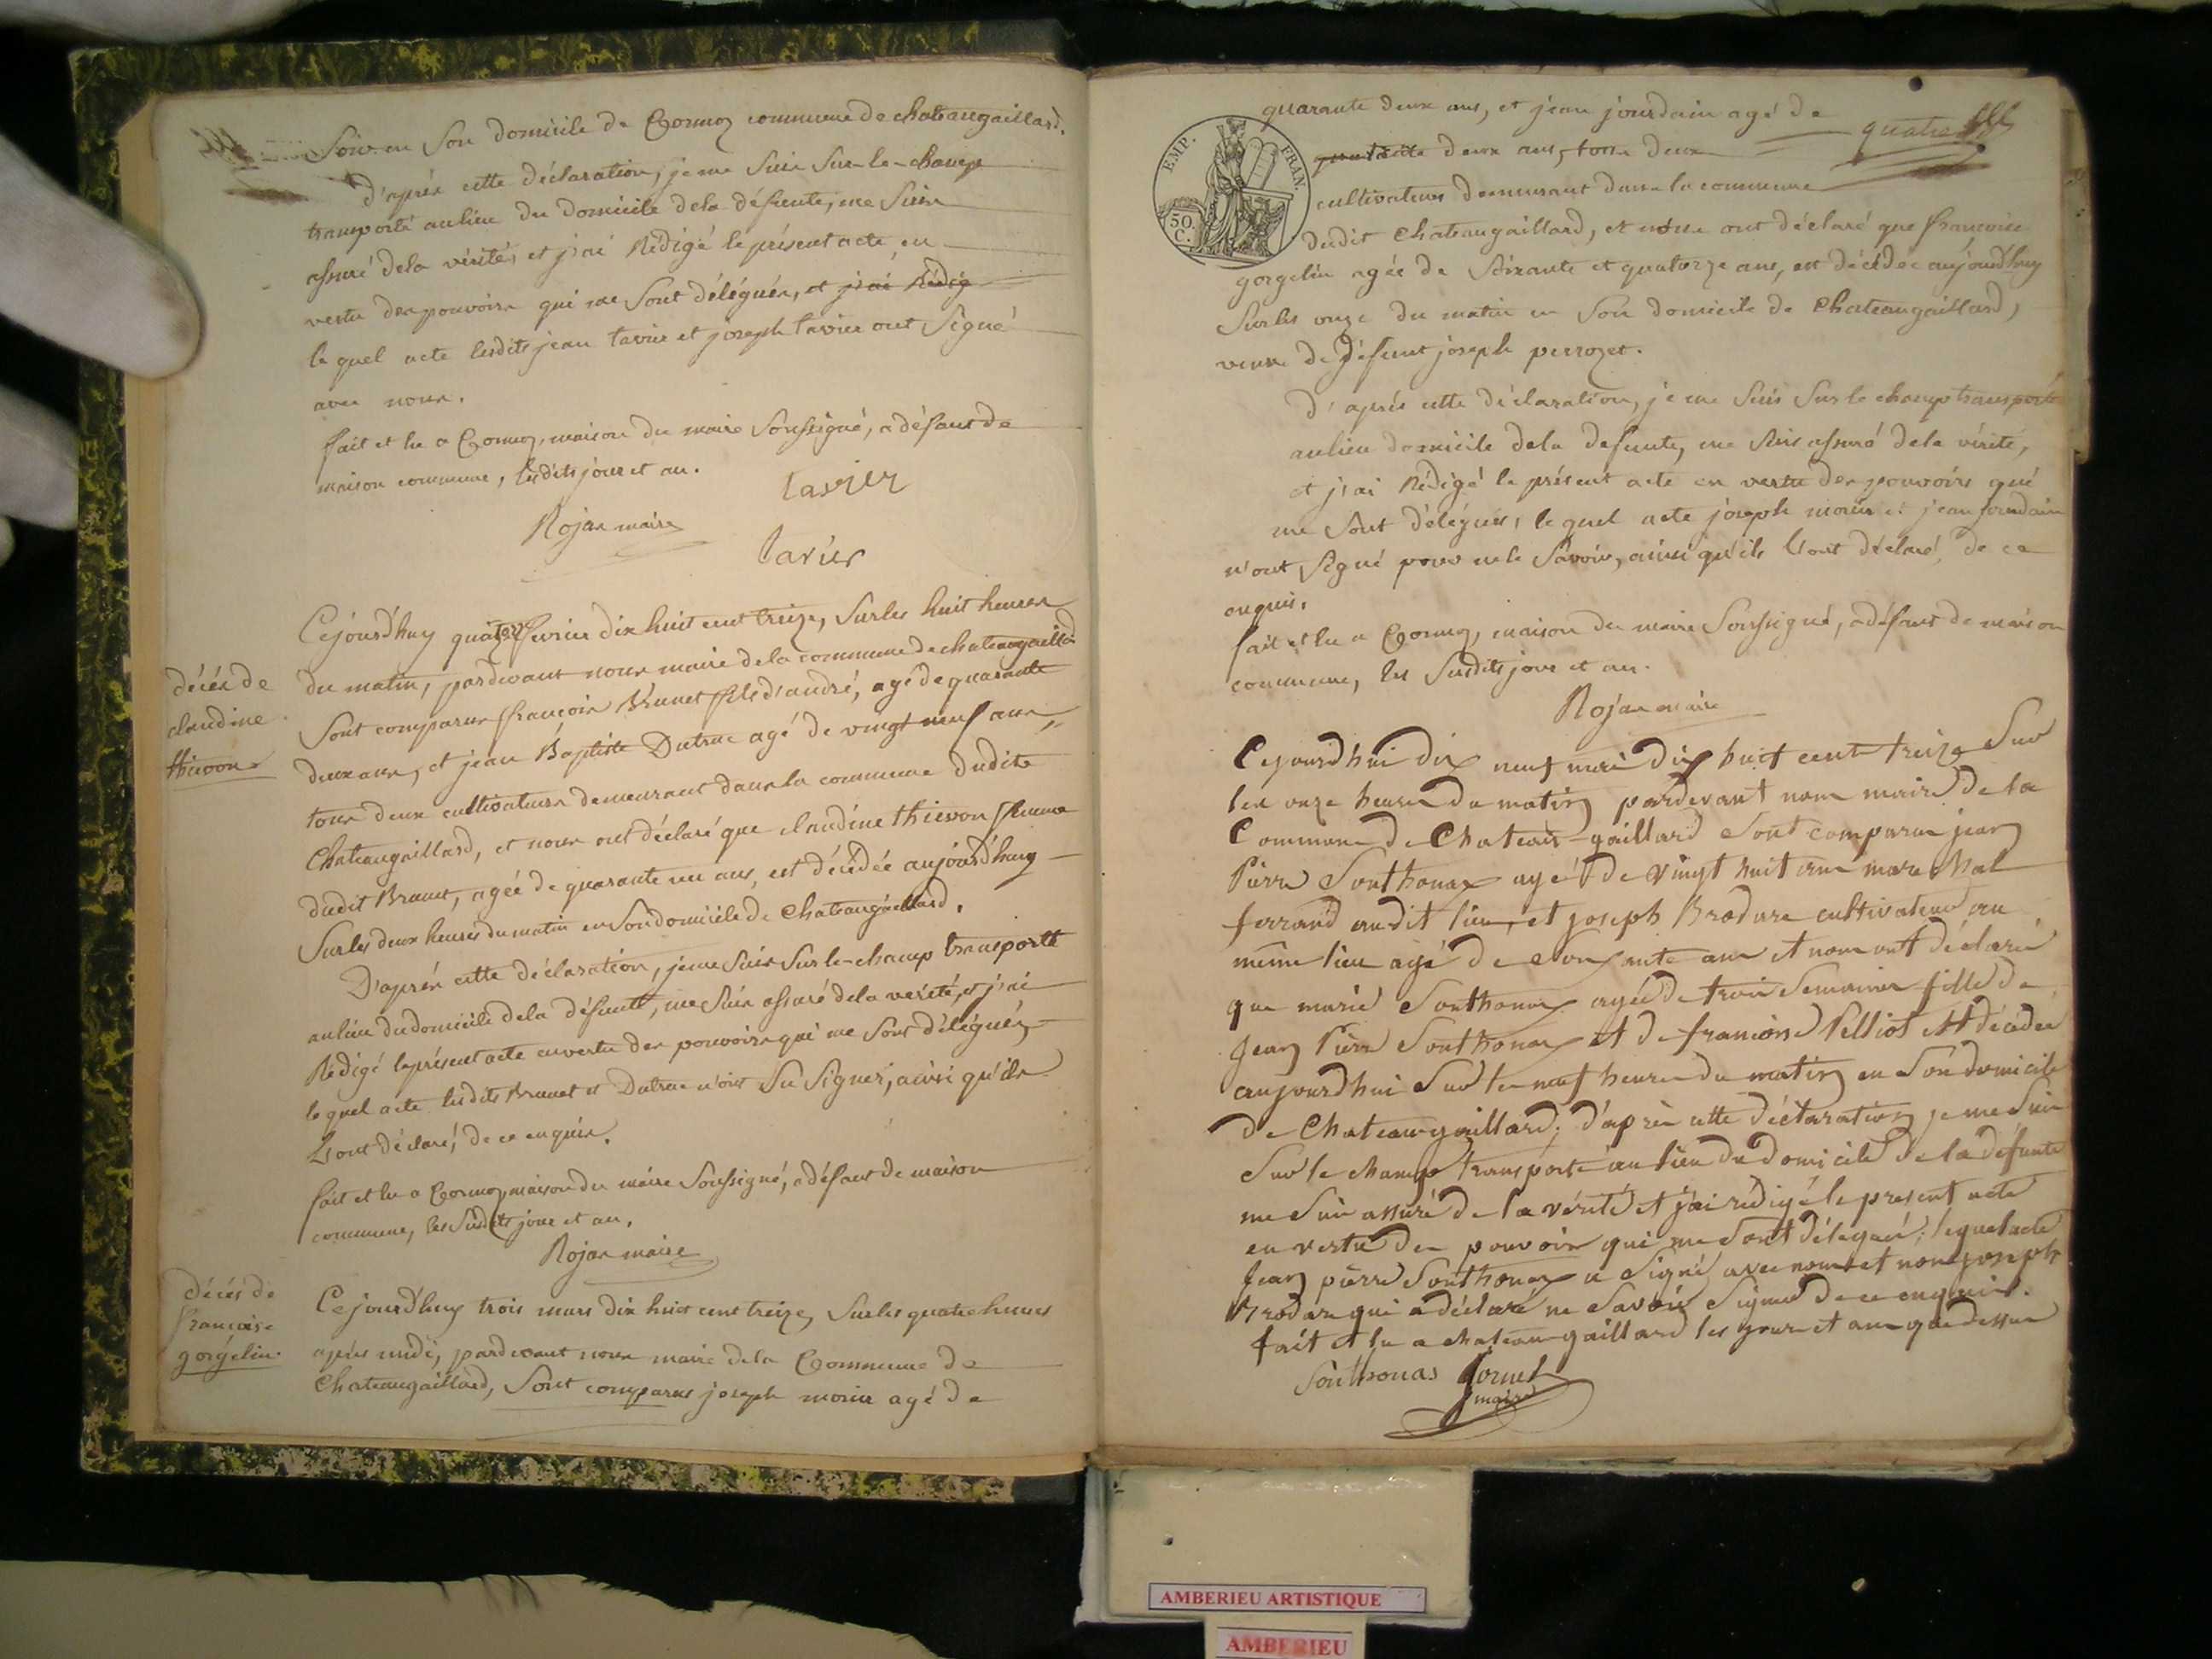 Soir en Son domicile de Cormoz commune de chateaugaillard.
d'après cette déclaration, je me Suis Sur-le-champ
transporté au lieu du domicile de la défunte, me Suis
assuré de la vérité, et j'ai Rédigé le présent acte, en
vertu des pouvoirs qui me Sont délégués, et j'ai Rédig
le quel acte lesdits jean tavier et joseph tavier ont Signé
avec nous.
fait et lu a Cormoz, maison du maire Soussigné, a défaut de
maison commune, lesdits jour et an.
tavier
Rojan maire
tavier
décés de
claudine
thievon
Cejourd'huy quatre fevrier dix huit cent treize, Sur les huit heures
du matin, pardevant nous maire de la commune de chateaugaillard
Sont comparus françois Brunet fils d'andré, agé de quarante
deux ans, et jean Baptiste Dutrue agé de vingt neuf ans,
tous deux cultivateurs demeurant dans la commune dudite
Chateaugaillard, et nous ont déclaré que claudine thievon femme
dudit Brunet, agée de quarante un ans, est décédée aujourd'huy
Sur les deux heures du matin en Son domicile de Chateaugaillard.
D'après cette déclaration, je me Suis Sur-le-champ transporté
au lieu du domicile de la défunte, me Suis assuré de la vérité, et j'ai
Rédigé le présent acte en vertu des pouvoirs qui me Sont délégués,
le quel acte lesdits Brunet et Dutrue n'ont Su Signer, ainsi qu'ils
l'ont déclaré, de ce enquis.
fait et lu a Cormoz maison du maire Soussigné, a défaut de maison
commune, les Susdits jour et an.
Rojan maire
décés de
francoise
gorgelin
Cejourd'huy trois mars dix huit cent treize, Sur les quatre heures
après midi, pardevant nous maire de la Commune de
Chateaugaillard, Sont comparus joseph morin agé de
quarante deux ans, et jean jourdain agé de
quatre
EMP. FRAN.
50 C.
quarante deux ans, tous deux
cultivateurs demeurant dans la commune
dudit Chateaugaillard, et nous ont déclaré que francoise
gorgelin agée de Soixante et quatorze ans, est décédée aujourd'huy
Sur les onze du matin en Son domicile de Chateaugaillard,
veuve de défunt joseph perrozet.
d'après cette déclaration, je me Suis Sur le champ transporté
au lieu domicile de la defunte, me Suis assuré de la vérité,
et j'ai Rédigé le présent acte en vertu des pouvoirs qui
me Sont délégués, le quel acte joseph morin et jean jourdain
n'ont Signé pour ne le Savoir, ainsi qu'ils l'ont déclaré, de ce
enquis.
fait et lu a Cormoz, maison du maire Soussigné, a défaut de maison
commune, les Susdits jour et an.
Rojan maire
Cejourd'hui dix neuf mai dix huit cent treize Sur
les onze heures du matin pardevant nous maire de la
Commune de Chateau-gaillard Sont comparus jean
Pierre Sonthonax agé de vingt huit ans marechal
ferrand audit lieu, et joseph Brodare cultivateur au
même lieu agé de Soixante ans et nous ont déclaré
que marie Sonthonax agée de trois Semaines fille de
Jean Pierre Sonthonax et de francoise Pelliot est décédée
aujourdhui Sur les neuf heures du matin en Son domicile
de Chateaugaillard; d'après cette déclaration je me Suis
Sur le champ transporté au lieu du domicile de la défunte
me Suis assuré de la vérité et j'ai rédigé le present acte
en vertu des pouvoirs qui me Sont délégués; lequel acte
Jean pierre Sonthonax a Signé avec nous et non joseph
Brodare qui a déclaré ne Savoir Signer de ce enquis.
fait et lu a chateau-gaillard les jour et an que dessus
Sonthonas Jornet
maire
AMBERIEU ARTISTIQUE
AMBERIEU